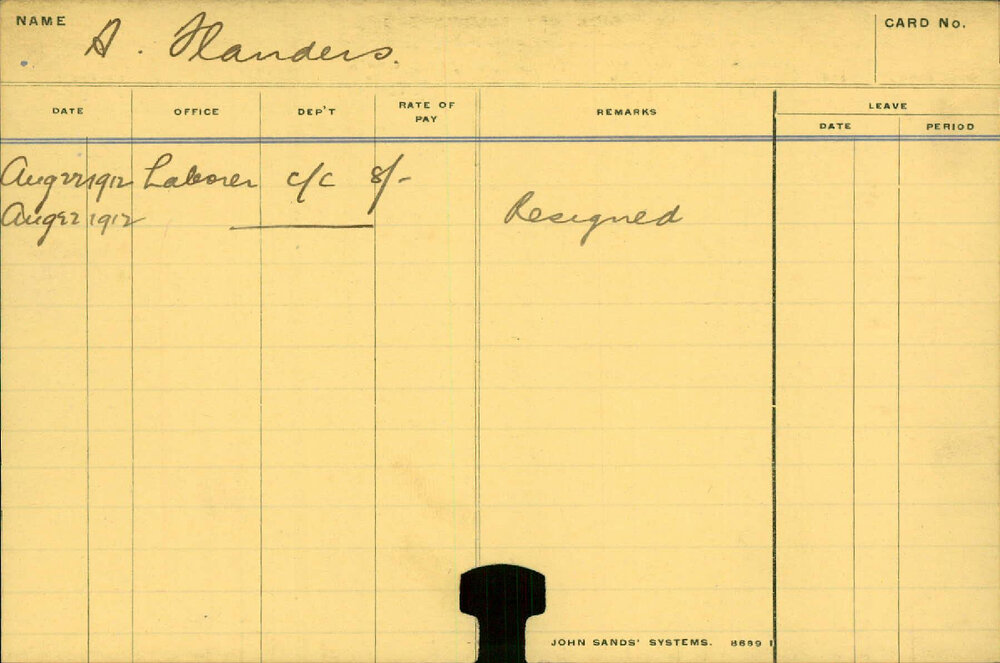 NAME A. Flanders. CARD No.
DATE OFFICE DEP'T RATE OF PAY REMARKS LEAVE
DATE PERIOD
Aug 22 1912 Laborer c/c 8/-
Aug 22 1912 Resigned
JOHN SANDS' SYSTEMS. 8689